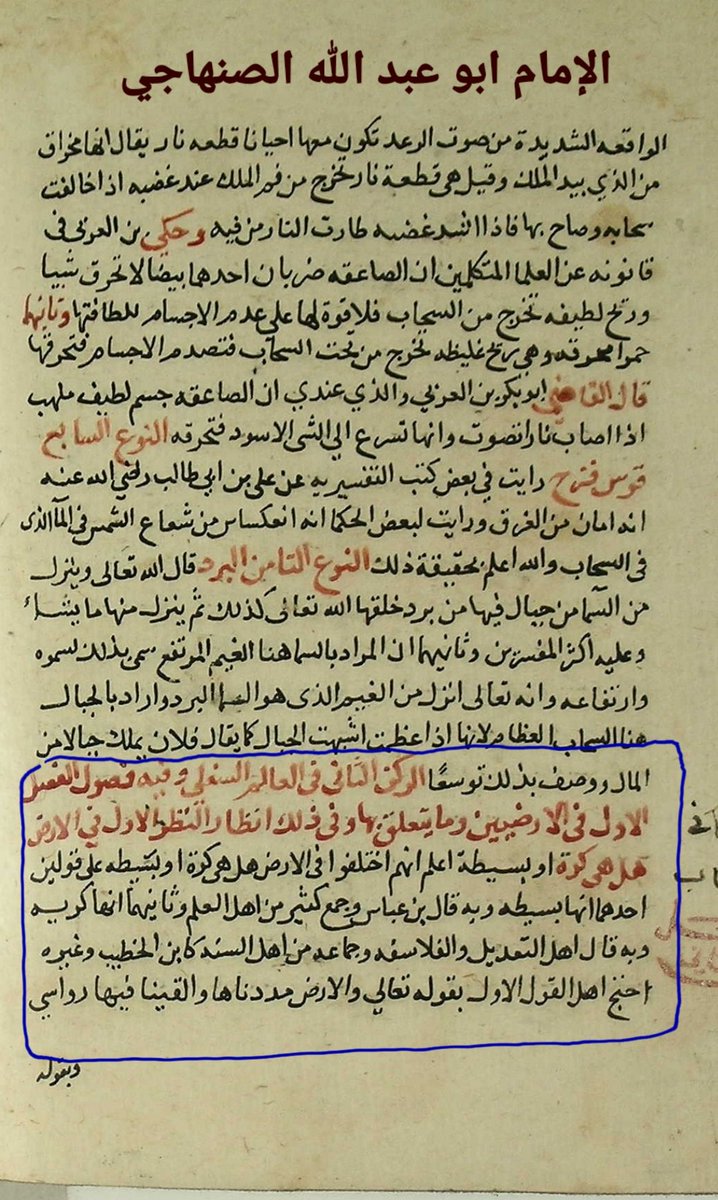 الإمام ابو عبد الله الصنهاجي
الواقعه الشديدة من صوت الرعد تكون معها احيانا قطعه نار يقال انها مخراق
من الذي بيد الملك وقيل هى قطعة نار تخرج من فم الملك عند غضبه اذا خالفت
سحابه وصاح بها فاذا اشتد غضبه طارت النار من فيه وحكى بن العربى فى
قانونه عن العلما المتكلمين ان الصاعقه ضربان احدهما بيضا لا تحرق شيا
وريح لطيفه تخرج من السحاب فلا قوة لها على عدم الاجسام للطافتها وثانيهما
حمرا محرقه وهى ريح غليظه تخرج من تحت السحاب فتصدم الاجسام فتحرقها
قال القاضي ابو بكر بن العربي والذي عندي ان الصاعقه جسم لطيف ملهب
اذا اصاب نارا تصوت وانها تسرع الي الشى الاسود فتحرقه النوع السابع
قوس قزح رايت في بعض كتب التفسير يه عن على بن ابى طالب رضي الله عنه
انه امان من الغرق ورايت لبعض الحكما انه انعكساس من شعاع الشمس فى المآ الذى
فى السحاب والله اعلم بحقيقة ذلك النوع الثامن البرد قال الله تعالى وينزل
من السما من جبال فيها من برد خلقها الله تعالى كذلك ثم ينزل منها ما يشاء
وعليه اكثر المفسرين وثانيهما ان المراد بالسما هنا الغيم المرتفع سمى بذلك لسموه
وارتفاعه وانه تعالى انزل من الغيم الذى هو السما البرد واراد بالجبال
هنا السحاب العظام لانها اذا عظمت اشبهت الجبال كما يقال فلان يملك جبالا من
المال ووصف بذلك توسعًا الركن الثانى فى العالم السفلي وفيه فصول الفصل
الاول فى الارضيين وما يتعلق بها وفى ذلك انظار النظر الاول في الارض
هل هى كرة او بسيطة اعلم انهم اختلفوا فى الارض هل هى كرة او بسيطه على قولين
احدهما انها بسيطه وبه قال بن عباس وجمع كثير من اهل العلم وثانيهما انها كريه
وبه قال اهل التعديل والفلاسفه وجماعه من اهل السنه كابن الخطيب وغيره
احتج اهل القول الاول بقوله تعالي والارض مددناها والقينا فيها رواسي
وبقوله